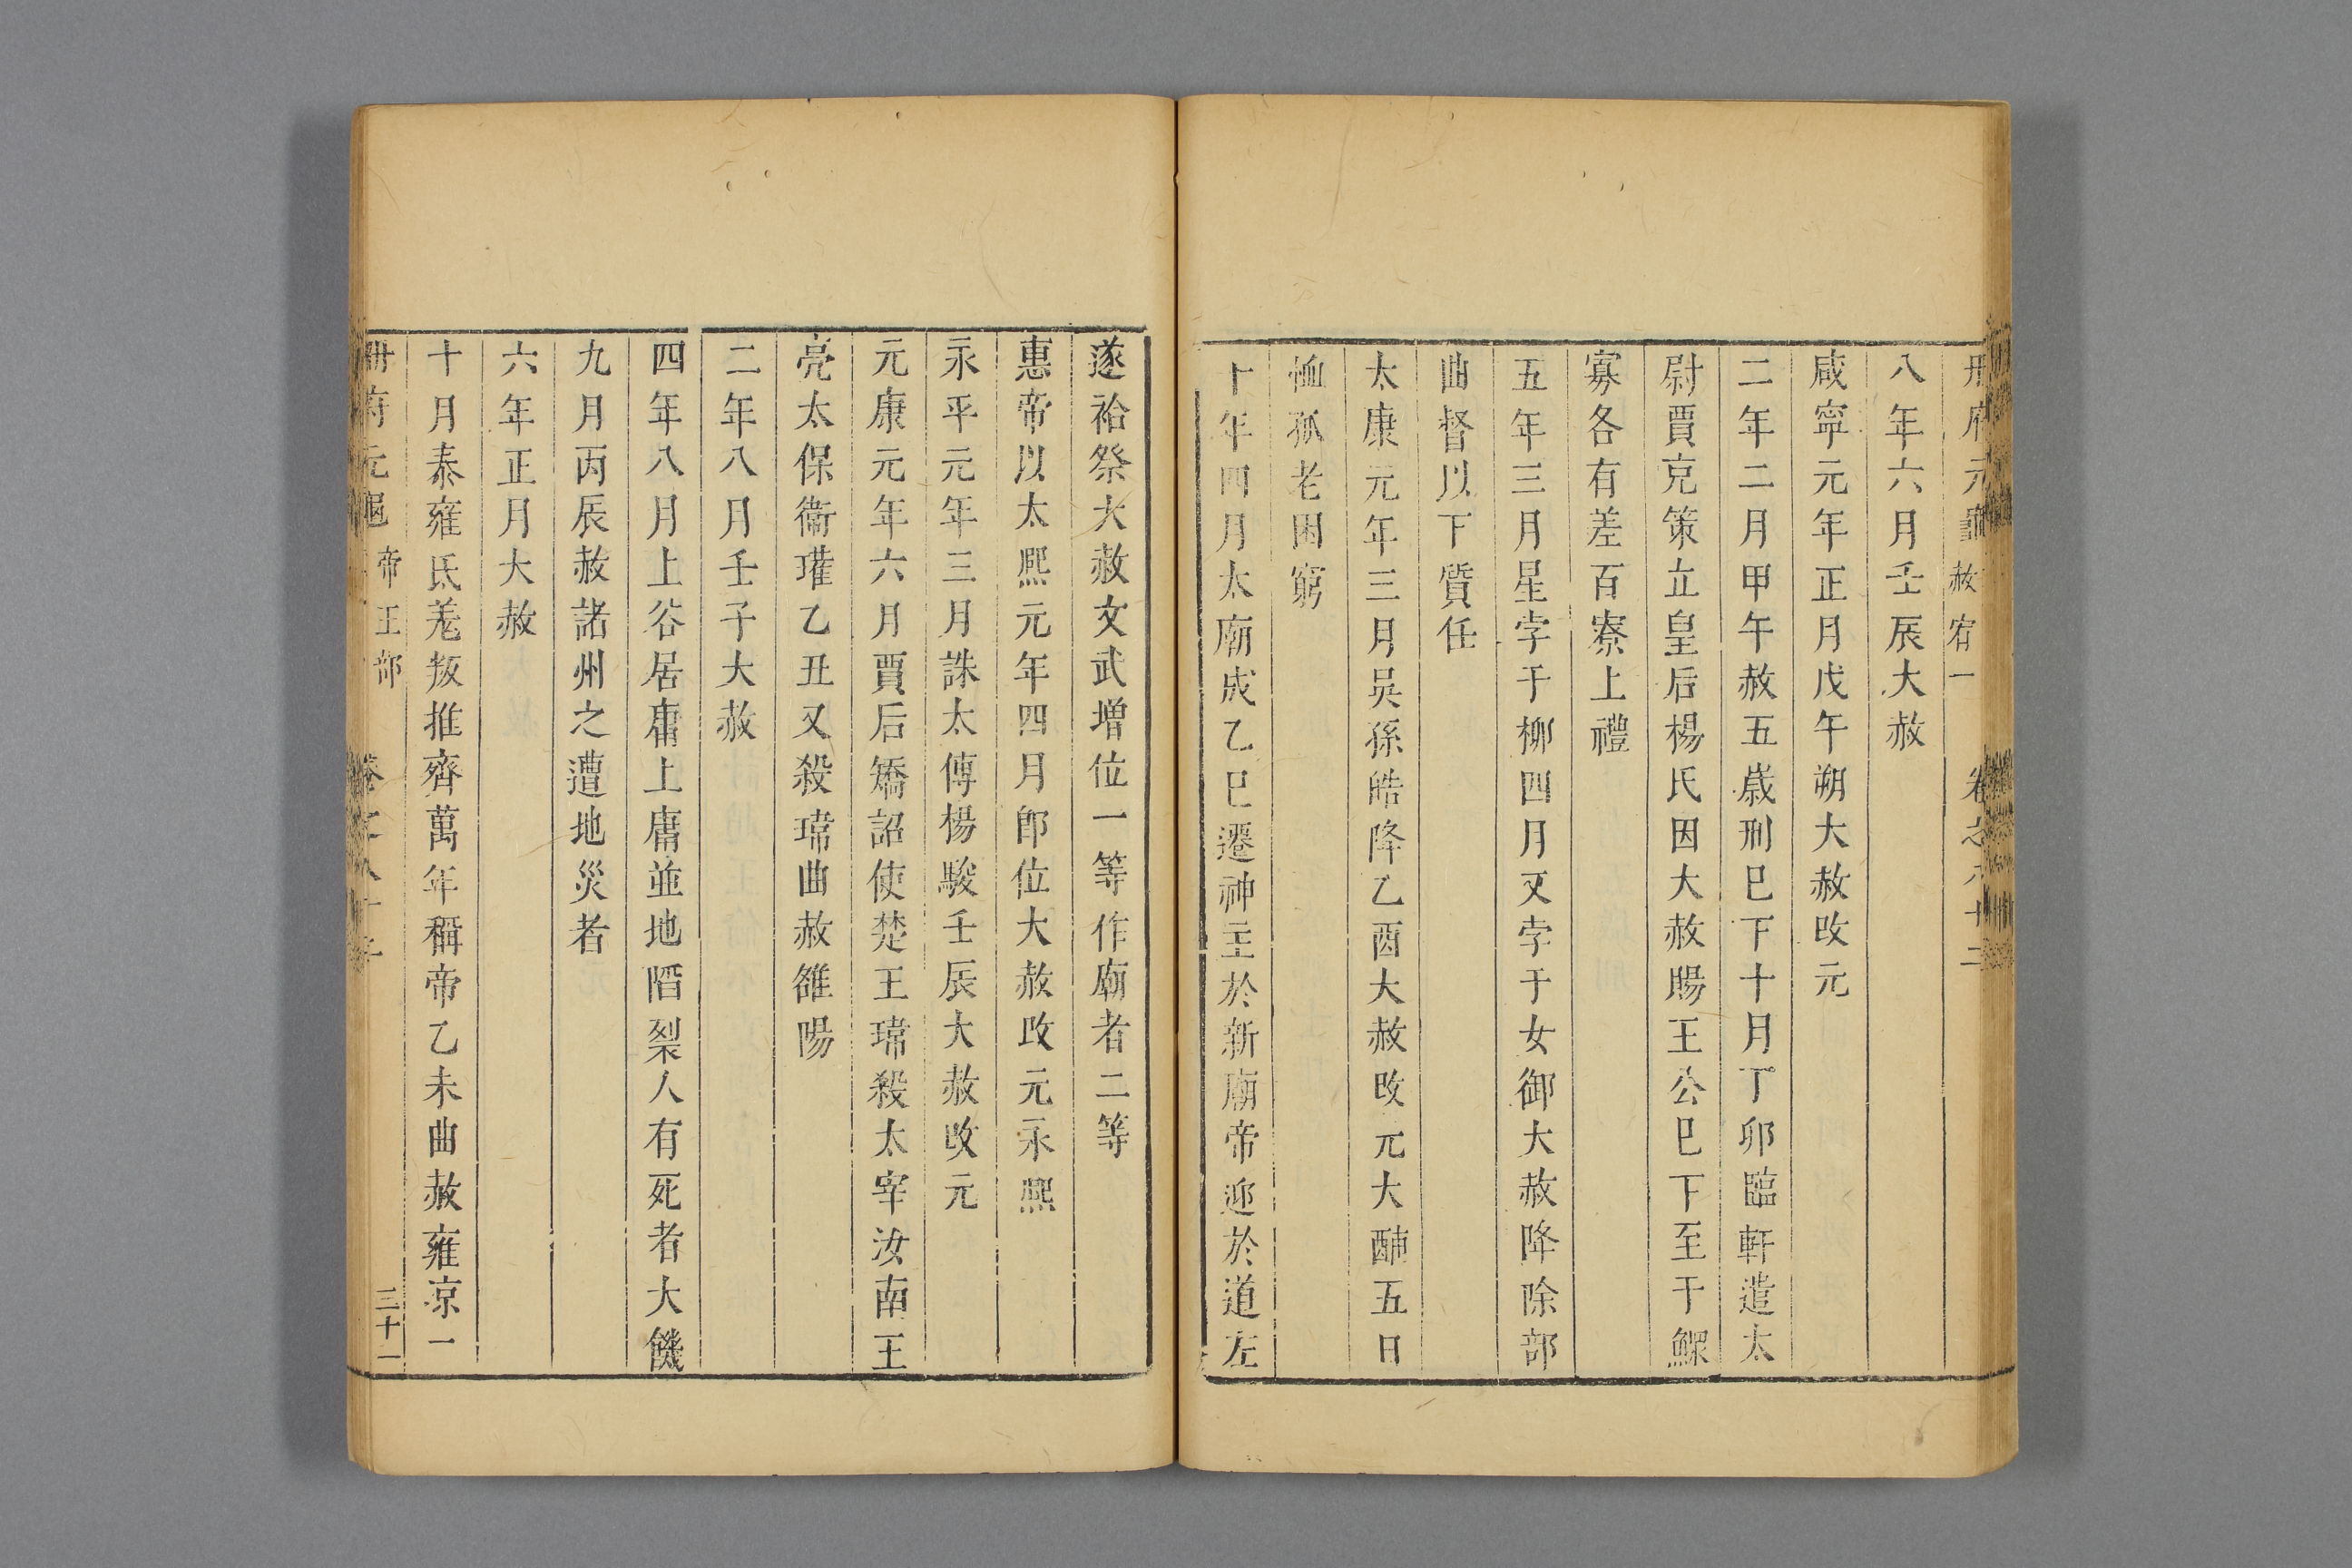 冊府元龜 赦宥一 卷之八十二
八年六月壬辰大赦
咸寧元年正月戊午朔大赦改元
二年二月甲午赦五歲刑巳下十月丁卯臨軒遣太
尉賈充策立皇后楊氏因大赦賜王公巳下至于鰥
寡各有差百寮上禮
五年三月星孛于柳四月又孛于女御大赦降除部
曲督以下質任
太康元年三月吳孫皓降乙酉大赦改元大酺五日
恤孤老困窮
十年四月太廟成乙巳遷神主於新廟帝迎於道左
遂祫祭大赦文武增位一等作廟者二等
惠帝以太熙元年四月卽位大赦改元永熙
永平元年三月誅太傅楊駿壬辰大赦改元
元康元年六月賈后矯詔使楚王瑋殺太宰汝南王
亮太保衞瓘乙丑又殺瑋曲赦雒陽
二年八月壬子大赦
四年八月上谷居庸上庸並地陷裂人有死者大饑
九月丙辰赦諸州之遭地災者
六年正月大赦
十月秦雍氐羗叛推齊萬年稱帝乙未曲赦雍凉一
冊府元龜 帝王部 卷之八十二 三十一